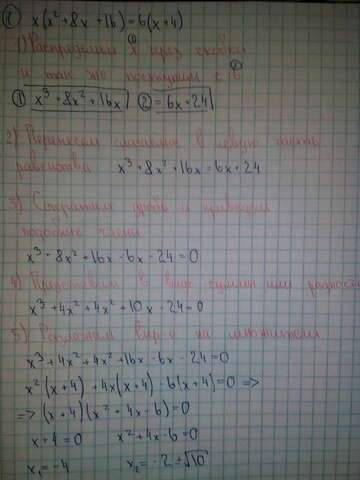 ① x(x²+8x+16)=6(x+4)
1) Распределим x через скобки
и так же поступим с 6
① x³+8x²+16x ② =6x+24
2) Перенесём слагаемое в левую часть
равенства x³+8x²+16x=6x+24
3) Сократим дробь и приведём
подобные члены
x³+8x²+16x-6x-24=0
4) Представим в виде суммы или разности
x³+4x²+4x²+10x-24=0
5) Разложим выр-е на множители
x³+4x²+4x²+16x-6x-24=0
x²(x+4)+4x(x+4)-6(x+4)=0 =>
=> (x+4)(x²+4x-6)=0
x+4=0 x²+4x-6=0
x₁=-4 x₂=-2±√10